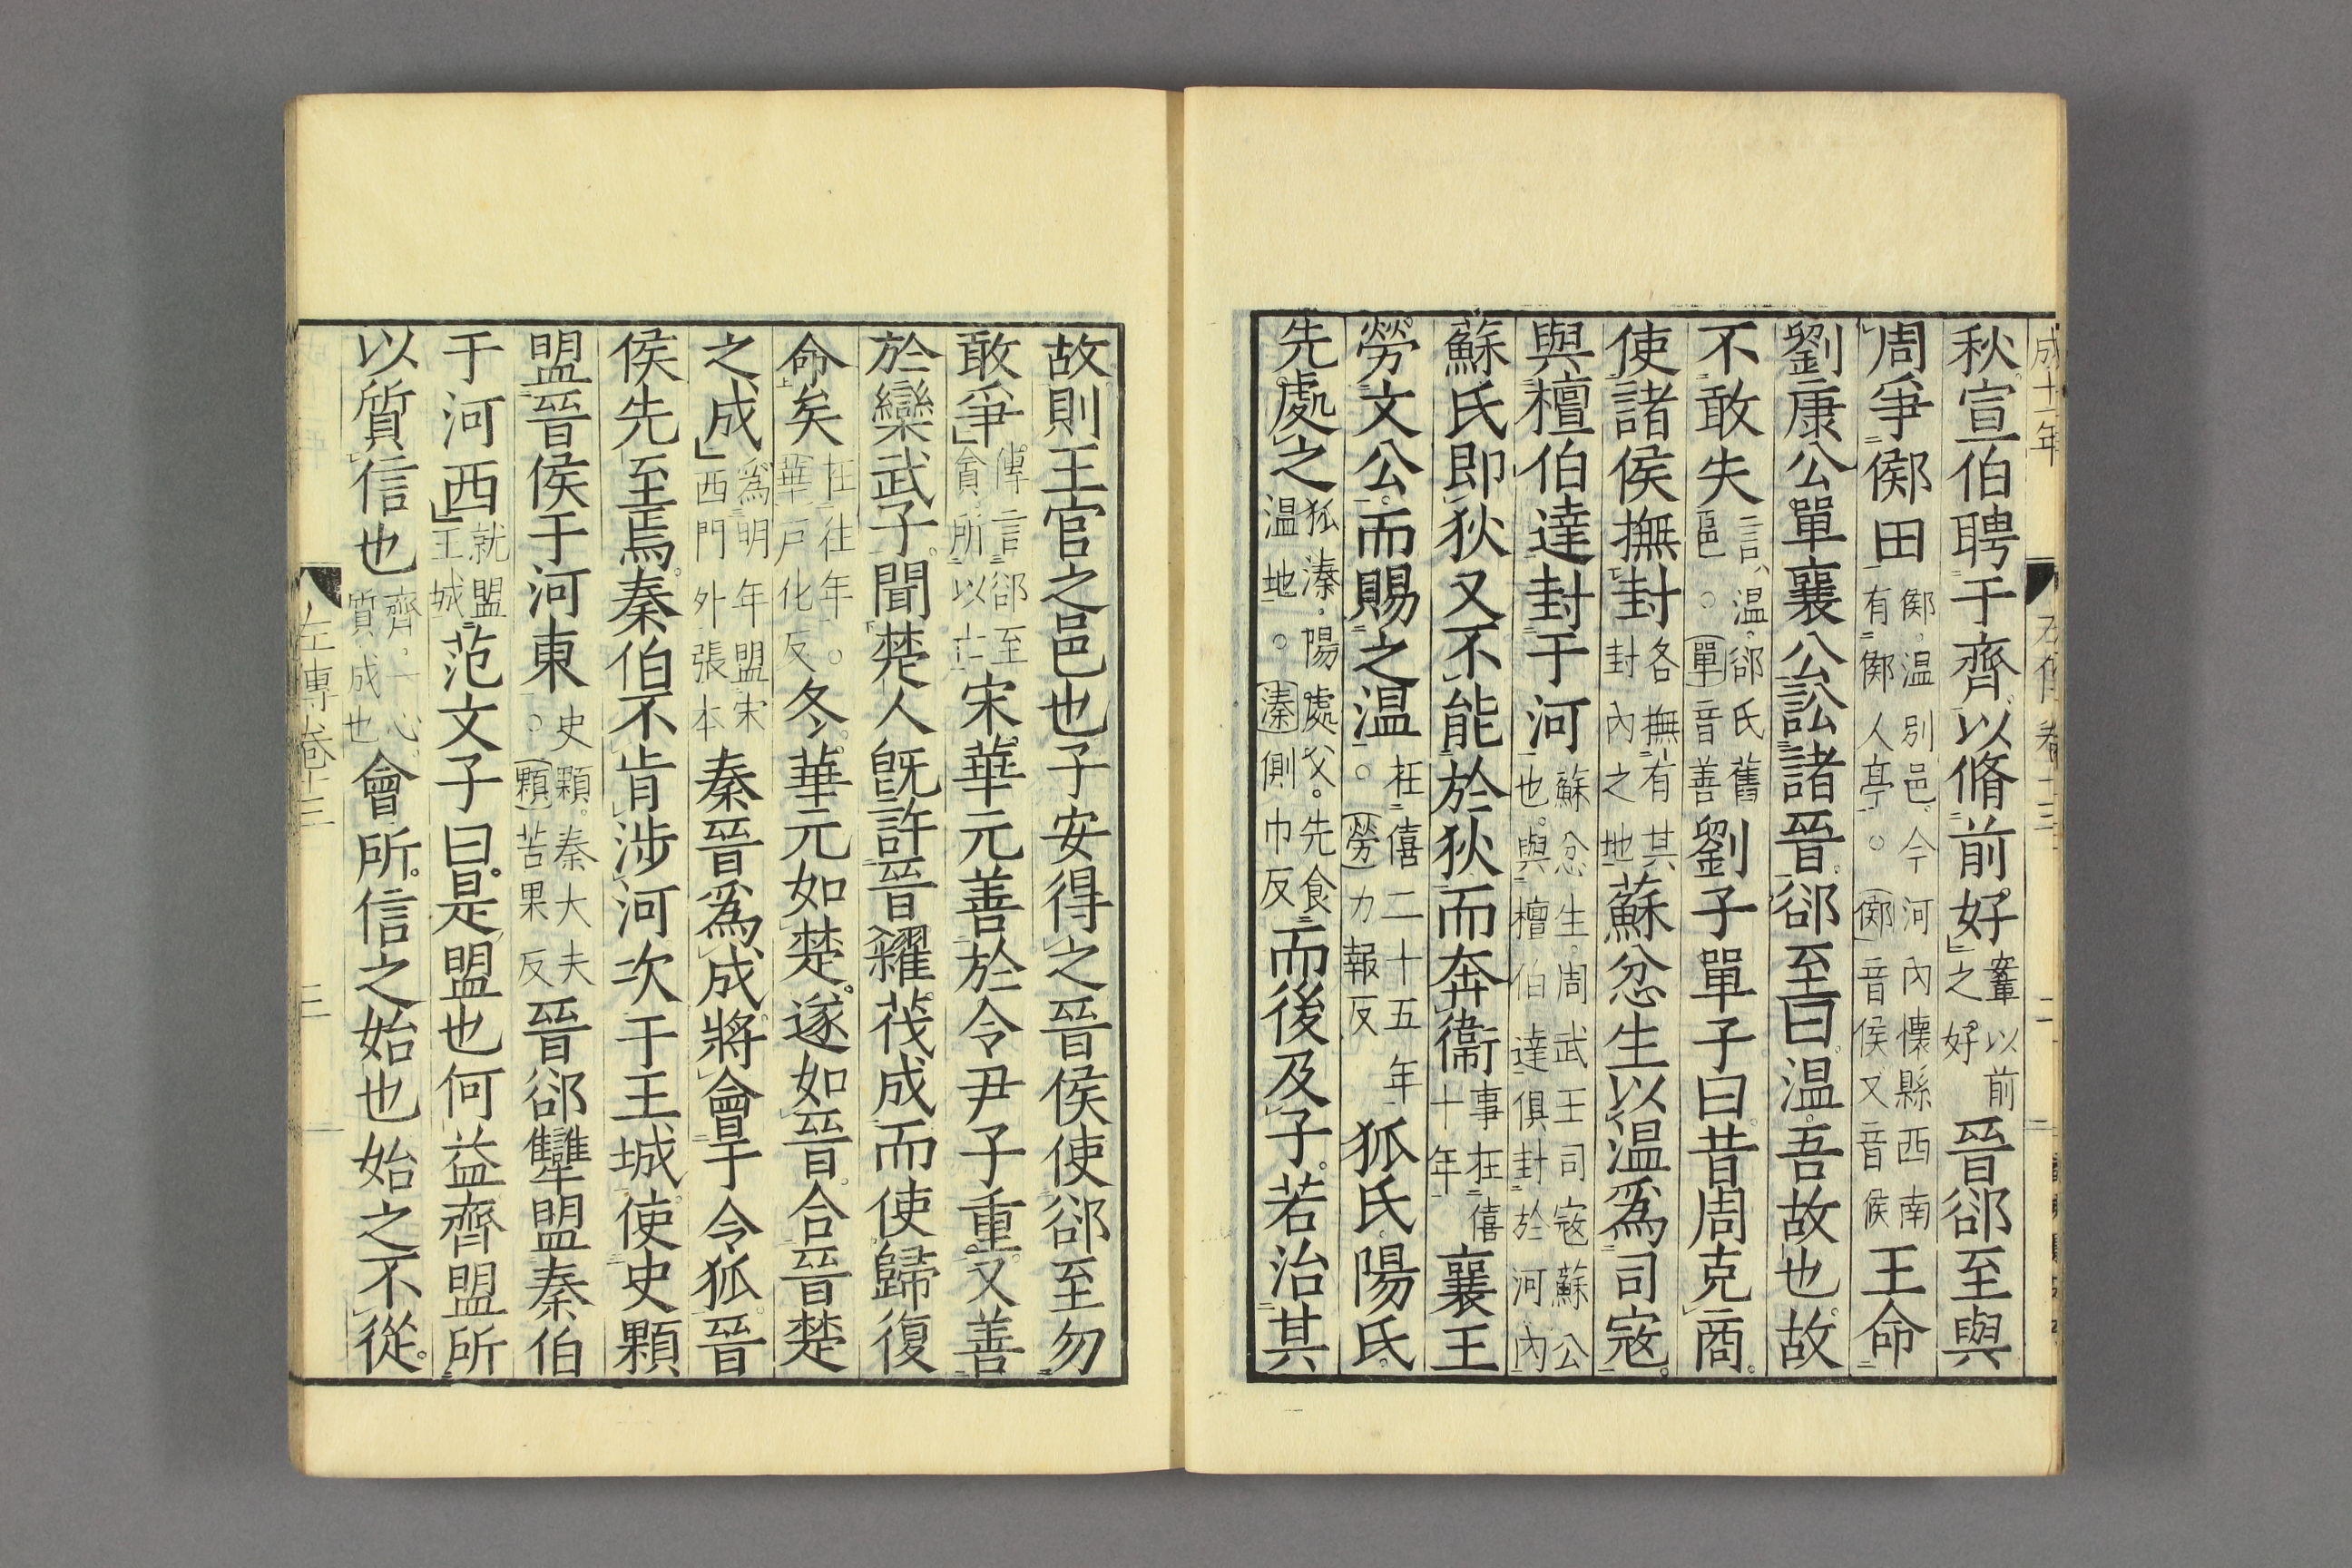 成十一年 左傳卷十三 二
秋宣伯聘于齊以脩前好鞌以前之好晉郤至與
周爭鄇田鄇温別邑今河內懷縣西南有鄇人亭。鄇音侯又音候王命
劉康公單襄公訟諸晉郤至曰温吾故也故
不敢失言温郤氏舊邑。單音善劉子單子曰昔周克商
使諸侯撫封各撫有其封內之地蘇忿生以温爲司寇
與檀伯達封于河蘇忿生周武王司寇蘇公也與檀伯達俱封於河內
蘇氏即狄又不能於狄而奔衞事在僖十年襄王
勞文公而賜之温在僖二十五年。勞力報反狐氏陽氏
先處之狐溱陽處父先食温地。溱側巾反而後及子若治其
故則王官之邑也子安得之晉侯使郤至勿
敢爭傳言郤至貪所以亡宋華元善於令尹子重又善
於欒武子聞楚人旣許晉糴茷成而使歸復
命矣在往年。華戶化反冬華元如楚遂如晉合晉楚
之成爲明年盟宋西門外張本秦晉爲成將會于令狐晉
侯先至焉秦伯不肯涉河次于王城使史顆
盟晉侯于河東史顆秦大夫。顆苦果反晉郤犫盟秦伯
于河西就盟王城范文子曰是盟也何益齊盟所
以質信也齊一心質成也會所信之始也始之不從
左傳卷十三 三